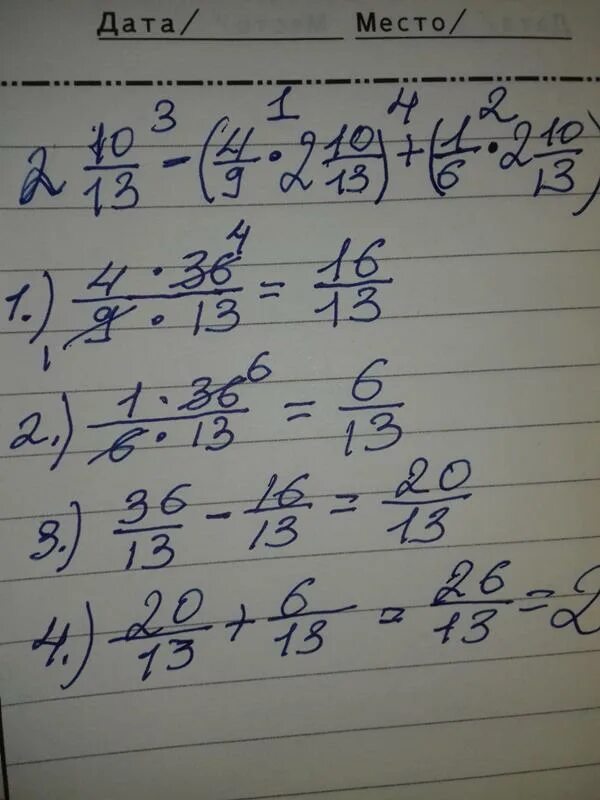 Дата/ Место/
2 10/13 -³ (4/9 ·¹ 2 10/13) +⁴ (1/6 ·² 2 10/13)
1.) (4 · 36 4)/(9 1 · 13) = 16/13
2.) (1 · 36 6)/(6 · 13) = 6/13
3.) 36/13 - 16/13 = 20/13
4.) 20/13 + 6/13 = 26/13 = 2